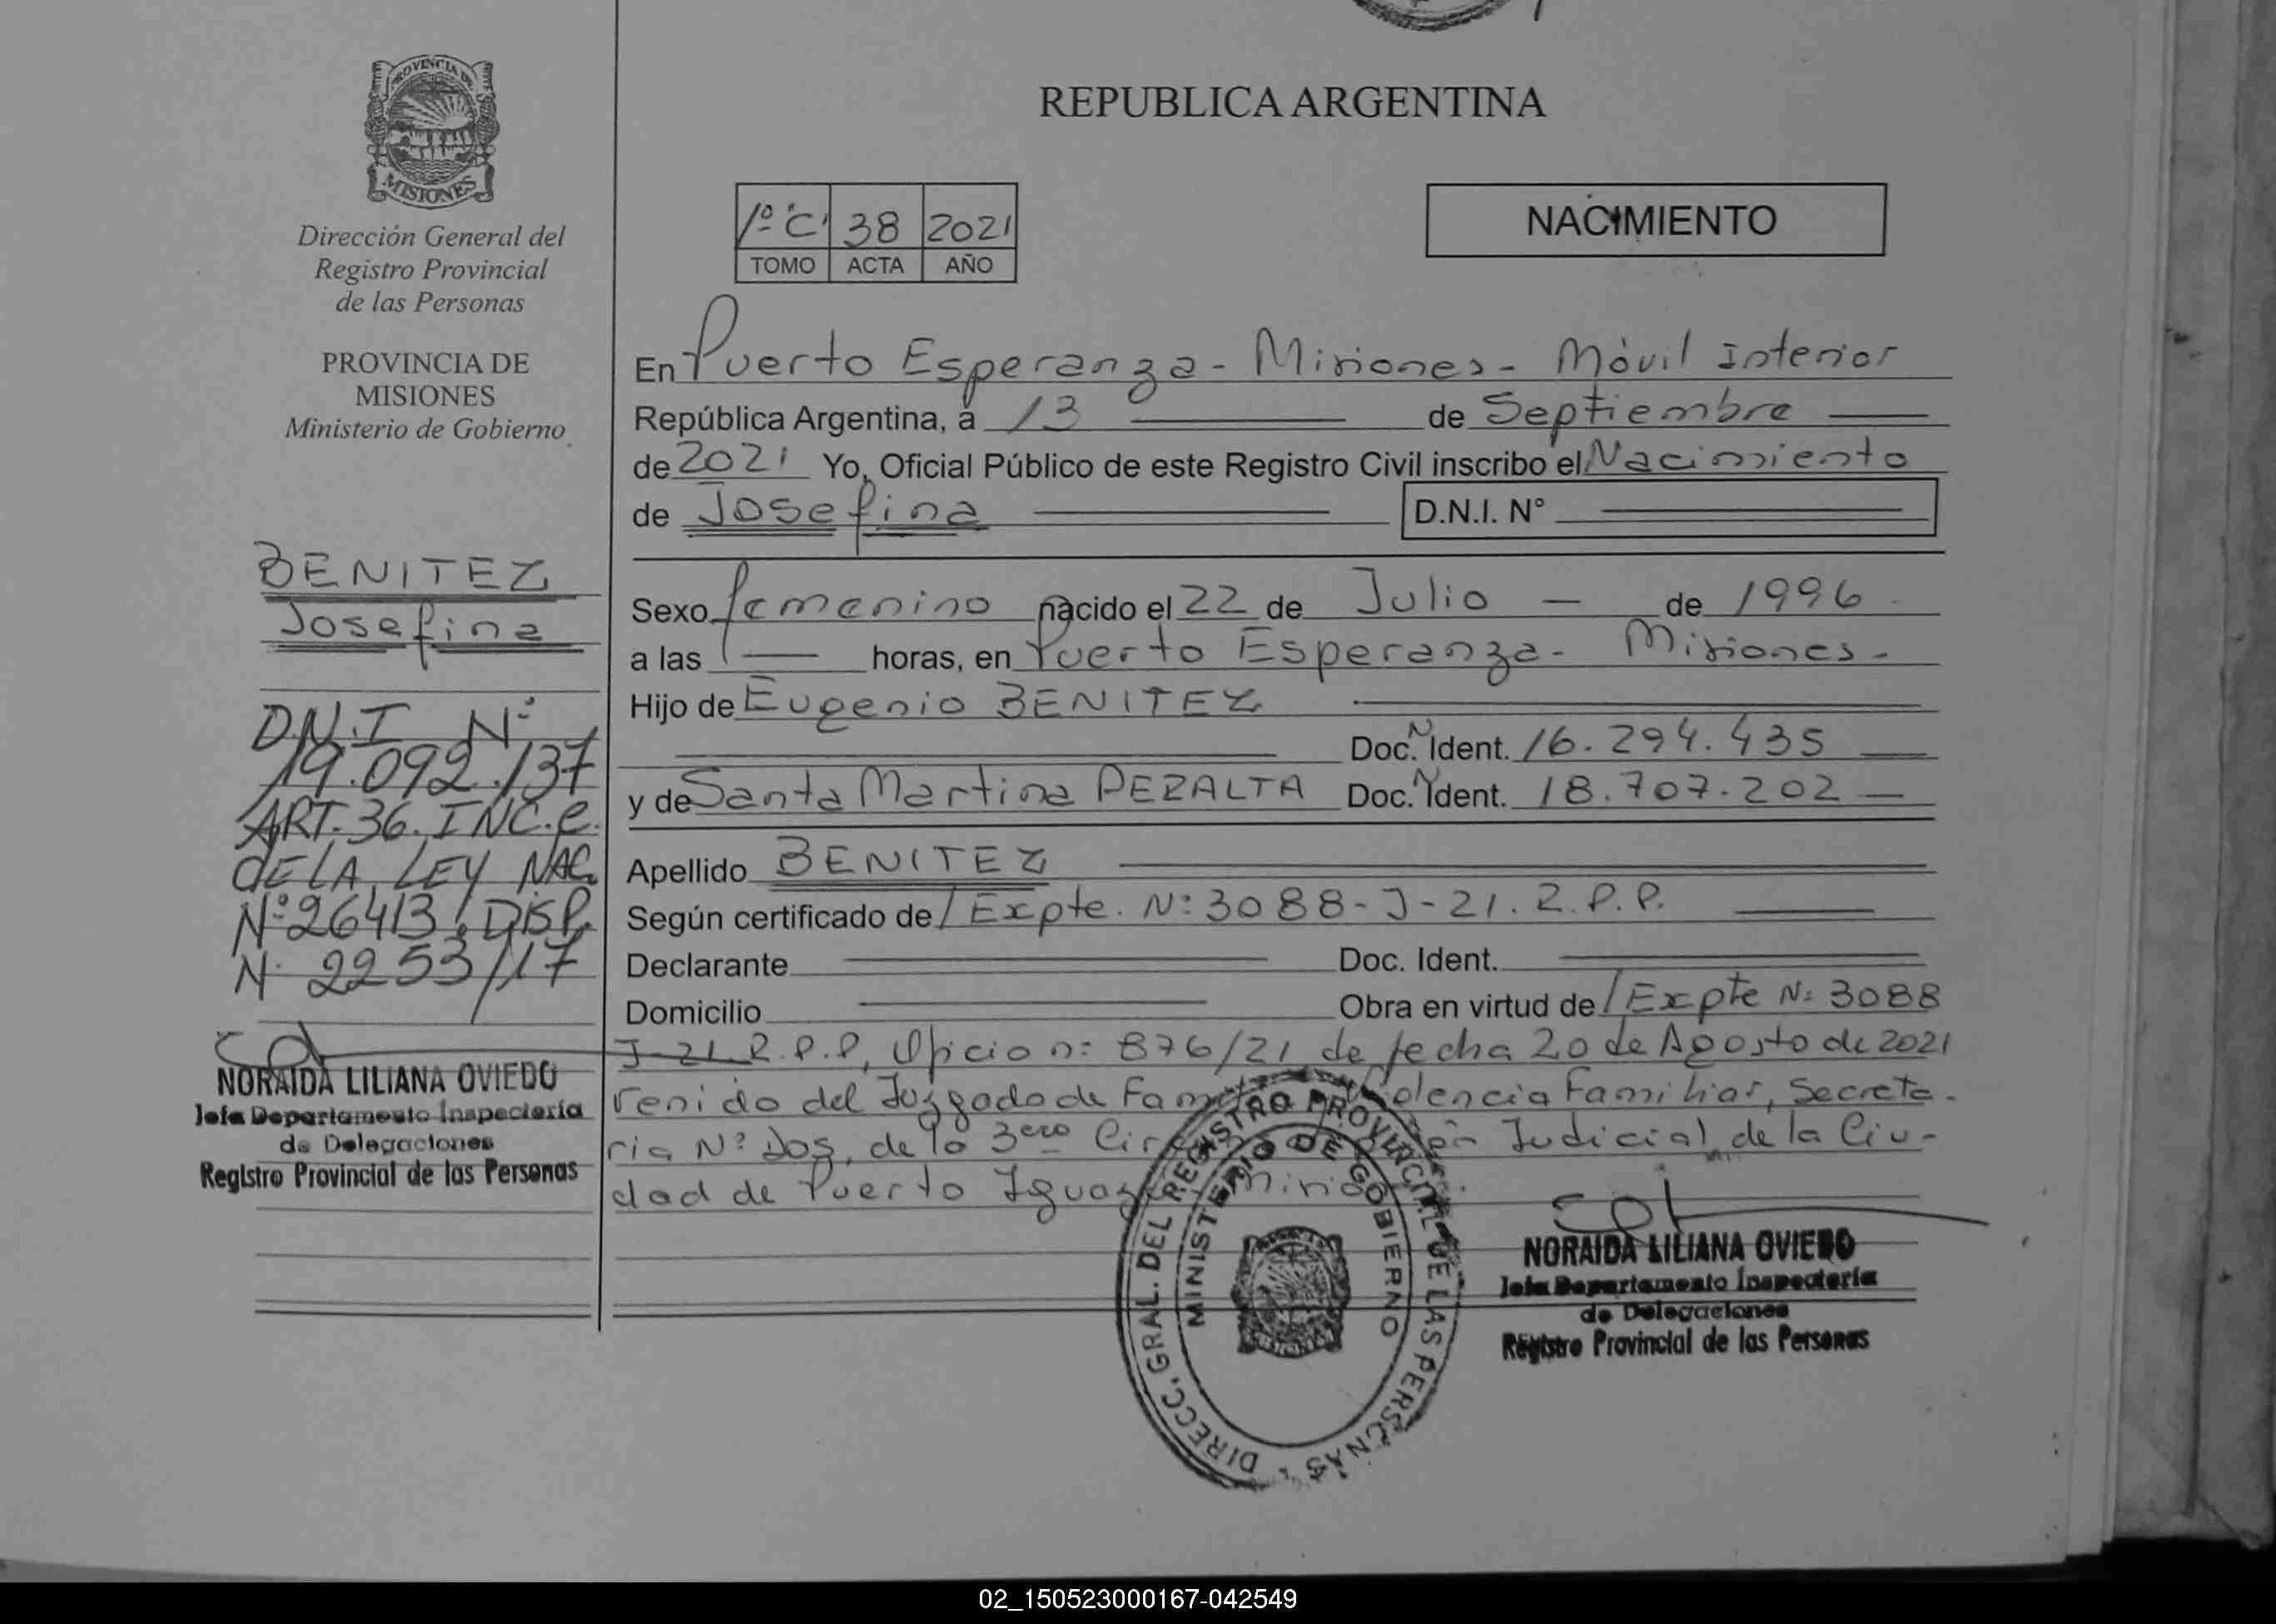 PROVINCIA DE
MISIONES
Dirección General del
Registro Provincial
de las Personas
PROVINCIA DE
MISIONES
Ministerio de Gobierno
BENITEZ
Josefina
D.N.I Nº
19.092.137
ART. 36. INC. e.
DE LA LEY NAC.
Nº 26413, DISP.
N. 2253/17
NORAIDA LILIANA OVIEDO
Jefa Departamento Inspectoría
de Delegaciones
Registro Provincial de las Personas
REPUBLICA ARGENTINA
1º "C" 38 2021
TOMO ACTA AÑO
NACIMIENTO
En Puerto Esperanza - Misiones - Móvil Interior
República Argentina, a 13 de Septiembre
de 2021 Yo, Oficial Público de este Registro Civil inscribo el Nacimiento
de Josefina D.N.I. N°
Sexo femenino nacido el 22 de Julio de 1996
a las horas, en Puerto Esperanza - Misiones -
Hijo de Eugenio BENITEZ
Doc. Ident. Nº 16.294.435
y de Santa Martina PERALTA Doc. Ident. Nº 18.707.202
Apellido BENITEZ
Según certificado de / Expte. Nº 3088-J-21. R.P.P.
Declarante Doc. Ident.
Domicilio Obra en virtud de / Expte Nº 3088
J-21 R.P.P, Oficio nº 876/21 de fecha 20 de Agosto de 2021
venido del Juzgado de Violencia Familiar, Secreta-
ria Nº Dos, de la 3era Judicial de la Ciu-
dad de Puerto Iguazú
DIRECC. GRAL. DEL REGISTRO PROVINCIAL DE LAS PERSONAS
MINISTERIO DE GOBIERNO
NORAIDA LILIANA OVIEDO
Jefa Departamento Inspectoría
de Delegaciones
Registro Provincial de las Personas
02_150523000167-042549